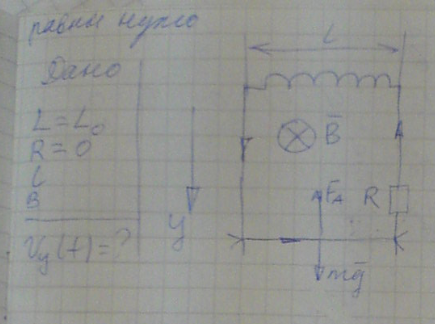 равны нулю
Дано
L = L₀
R = 0
l
B
V_y(t) = ?
y
l
B̄
F_A
R
mḡ